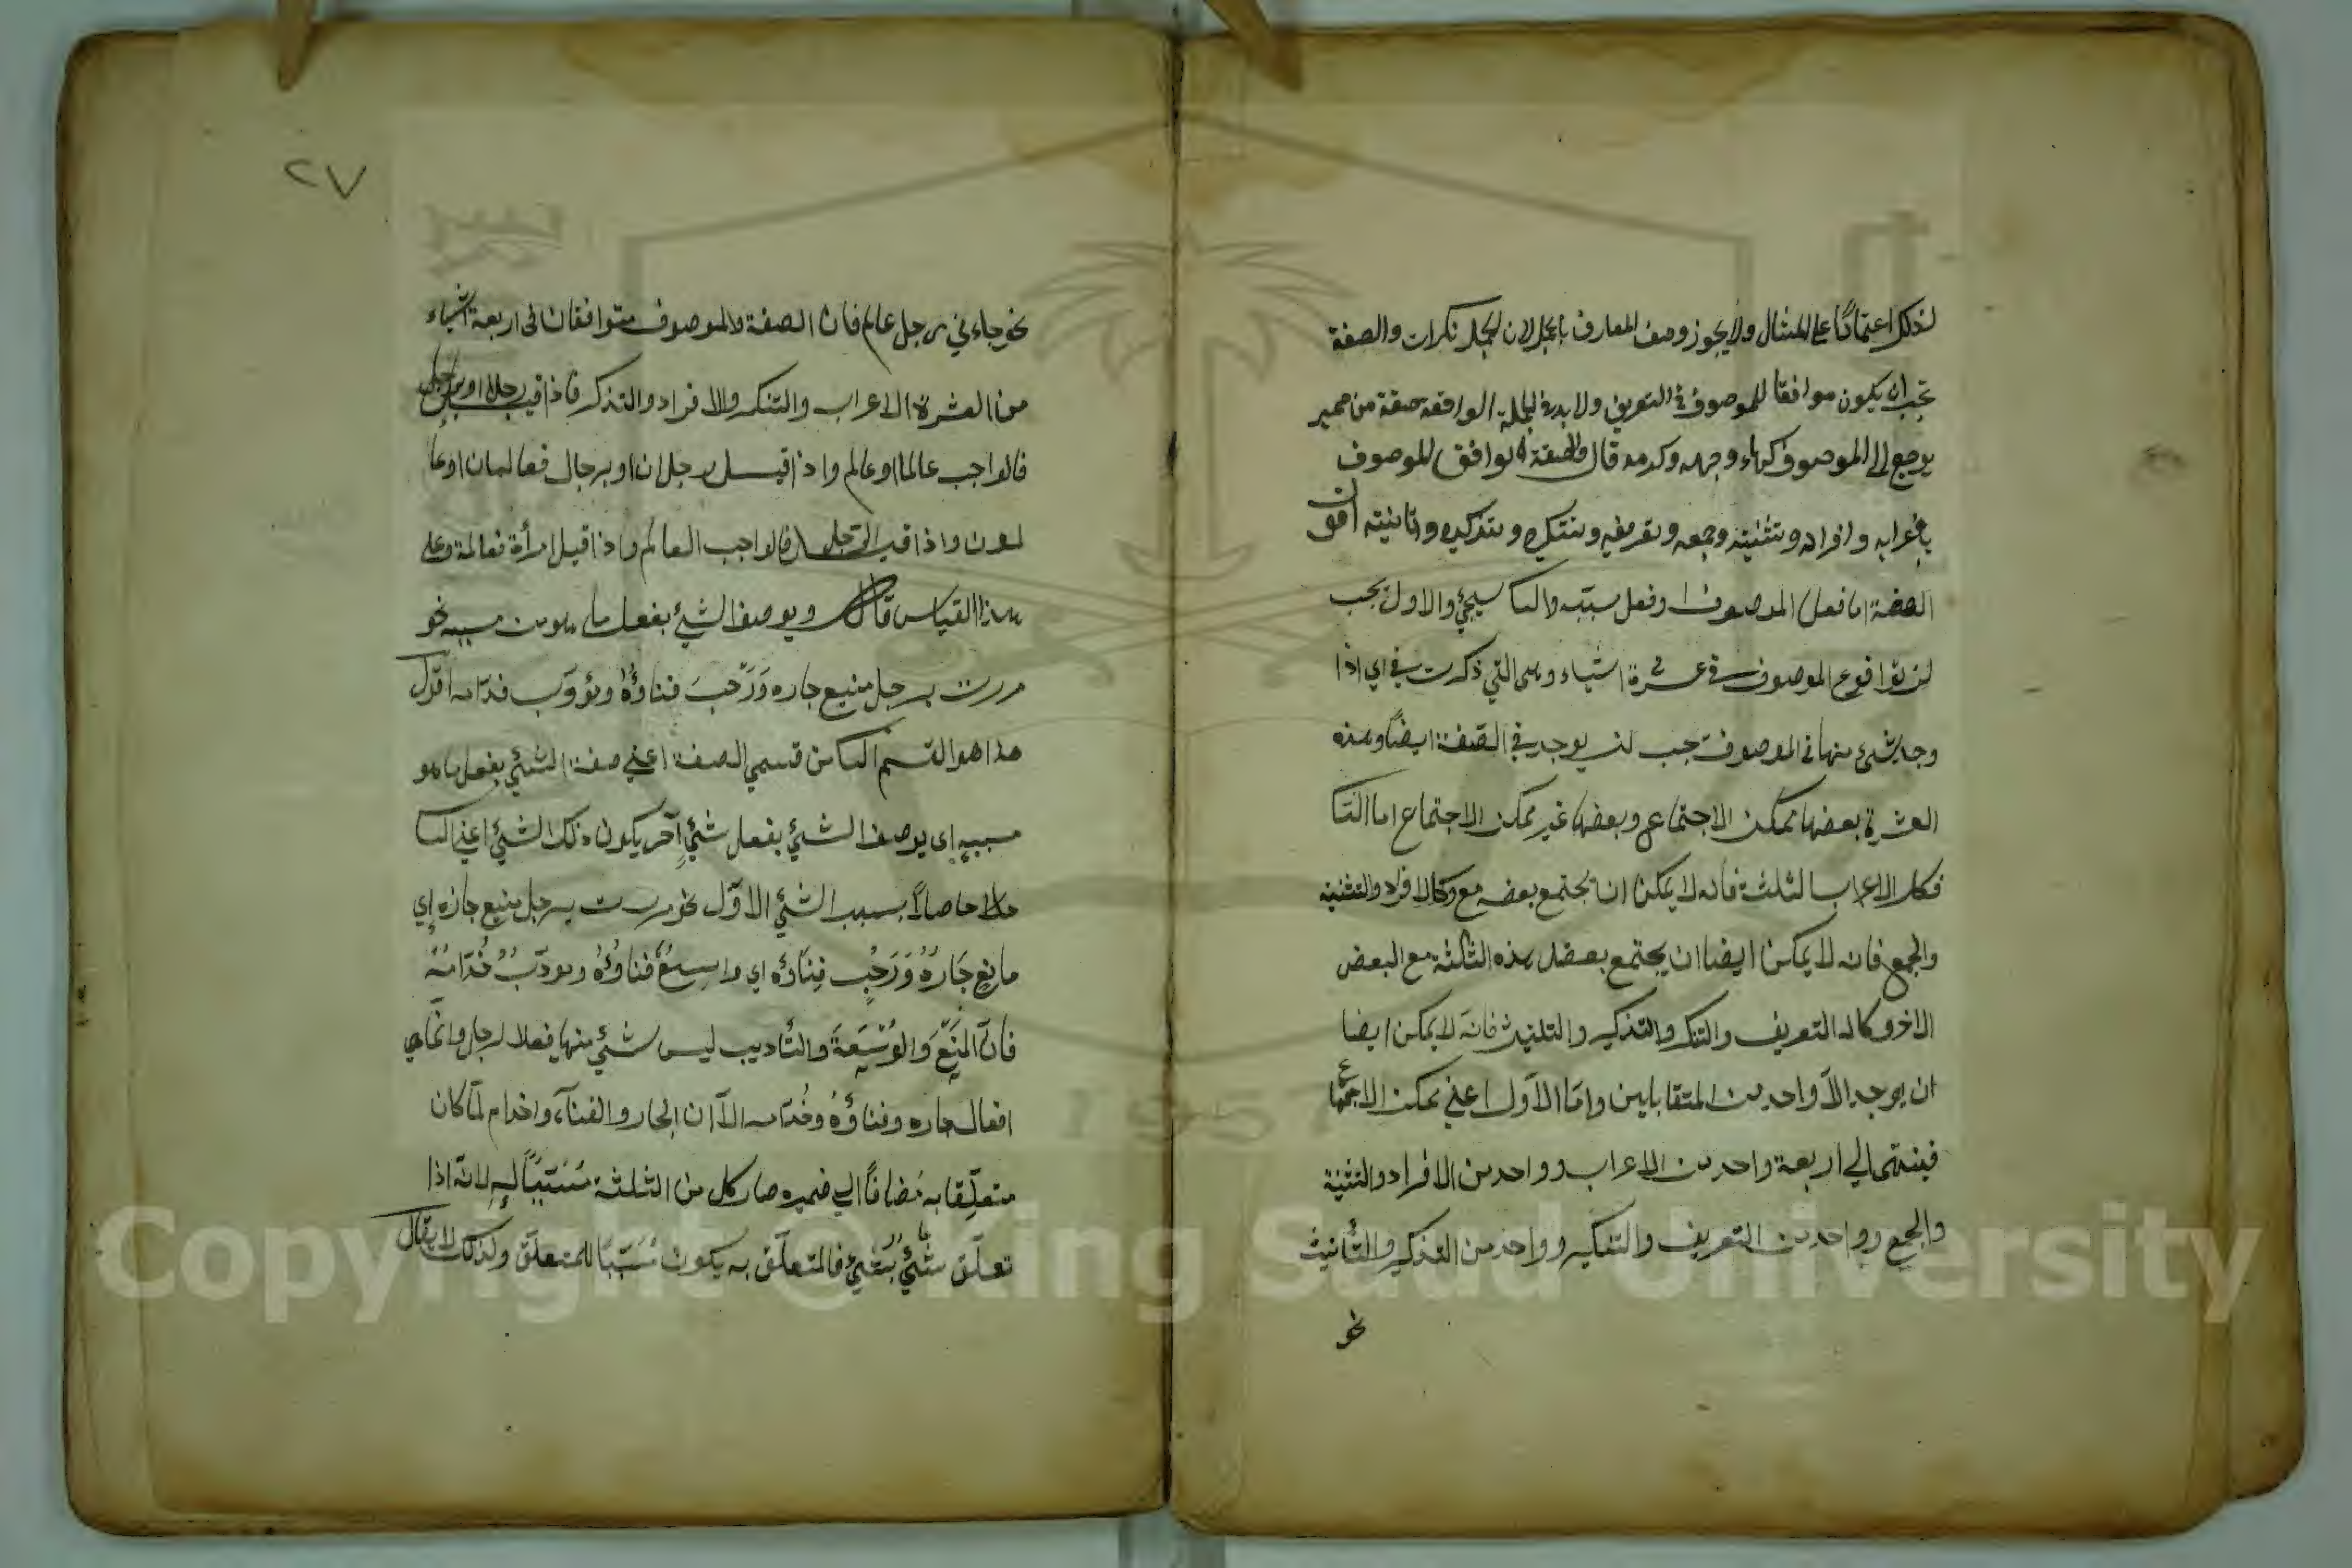 لذلك اعتمادًا على المثال ولا يجوز وصف المعارف بالجمل لان الجمل نكرات والصفة
تجب ان يكون موافقا للموصوف في التعريف ولا بد في الجملة الواقعة صفة من ضمير
يرجع الى الموصوف كهاء وجهه وكرمه قال والصفة توافق الموصوف
باعرابه وافراده وتثنيته وجمعه وتعريفه وتنكيره وتذكيره وتانيثه اقول
الصفة اما فعل الموصوف او فعل سببه والثا سيجئ والاول يجب
لن توافق الموصوف في عشرة اشياء وهى التي ذكرت في اي اذا
وجد شئ منها في الموصوف يجب لن يوجد في الصفة ايضًا وهذه
العشرة بعضها ممكن الاجتماع وبعضها غير ممكن الاجتماع اما الثا
فكالاعراب الثلثة فانه لا يمكن ان يجتمع بعضه مع وكالافراد والتثنية
والجمع فانه لا يمكن ايضا ان يجتمع بعض هذه الثلثة مع البعض
الاخر وكالتعريف والتنكير والتذكير والتانيث فانه لا يمكن ايضا
ان يوجد الا واحد من المتقابلين وامّا الاول اعني ممكن الاجتماع
فينتهى الى اربعة واحد من الاعراب وواحد من الافراد والتثنية
والجمع وواحد من التعريف والتنكير وواحد من التذكير والتأنيث
نحو
٢٧
نحو جاءني رجل عالم فان الصفة والموصوف متوافقان في اربعة اشياء
من العشرة الاعراب والتنكير والافراد والتذكير فاذا قيل رجلا او برجل
فالواجب عالما او عالم واذا قيل رجلان او برجال فعالمان او عا
لمون واذا قيل الرجل فالواجب العالم واذا قيل امرأة فعالمة وعلى
هذا القياس قال ويوصف الشئ بفعل ما هو من سببه نحو
مررت برجل منيع جاره ورَحْب فناؤُهُ ومؤدّب خدّامه اقول
هذا هو القسم الثا من قسمي الصفة اعني صفة الشئ بفعل ما هو
سببه اى يوصف الشئ بفعل شئ آخر يكون ذلك الشئ اعني الثا
حاصلاً بسبب الشئ الاوّل نحو مررت برجل منيع جاره اي
مانع جَارُهُ وَرَحْبٍ فِنَاؤه اي واسعٌ فناؤُهُ ومؤدّبٌ خُدّامُهُ
فانّ المَنْعَ والوُسْعَةَ والتأديب ليس شئ منها فعلا لرجل وانما هي
افعال جاره وفناؤُهُ وخُدّامه الاّ ان الجار والفناء والخدام لمّا كان
متعلّقا به مُضافًا الى ضميره صار كل من الثلثة مُسَبّبًا له لانه اذا
تعلّق شئ بشئ فالمتعلّق به يكون مُسَبّبًا للمتعلّق ولذلك لا يقال
Copyright © King Saud University
1957